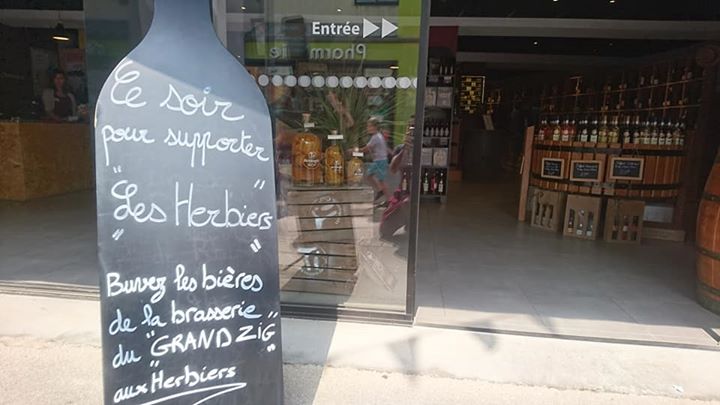 Entrée
Pharm
Ce soir
pour supporter
"Les Herbiers"
Buvez les bières
de la brasserie
du "GRAND ZIG"
aux Herbiers